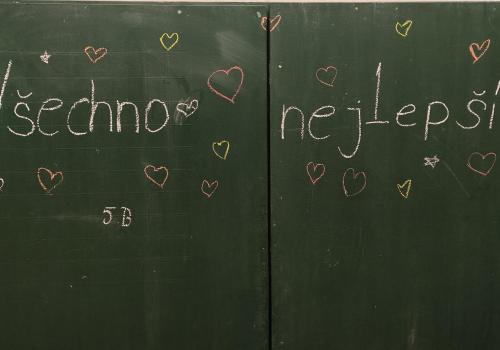 Všechno nejlepší
5B